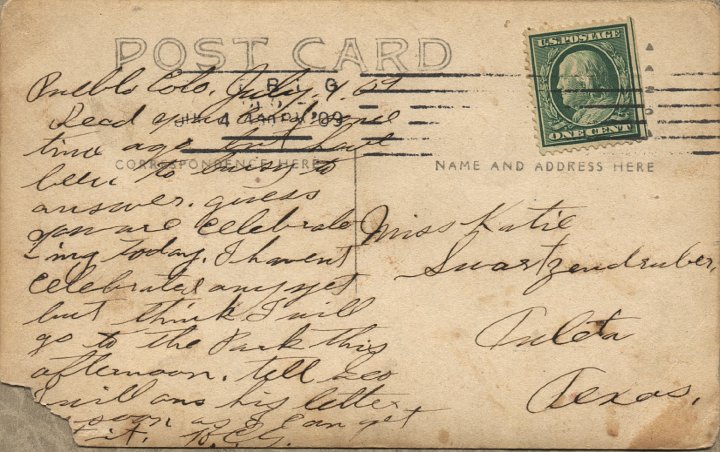 POST CARD
U.S. POSTAGE
ONE CENT
CORRESPONDENCE HERE
NAME AND ADDRESS HERE
Pueblo Colo, July, 4, 09
Read your card some
time ago but have
been to buisy to
answer. guess
you are celebrate
ing today. I havent
celebrated any yet
but think I will
go to the Park this
afternoon. tell
I will ans his letter
soon as I can get
it.
Miss Katie
Swartzendruber,
Tuleta
Texas,